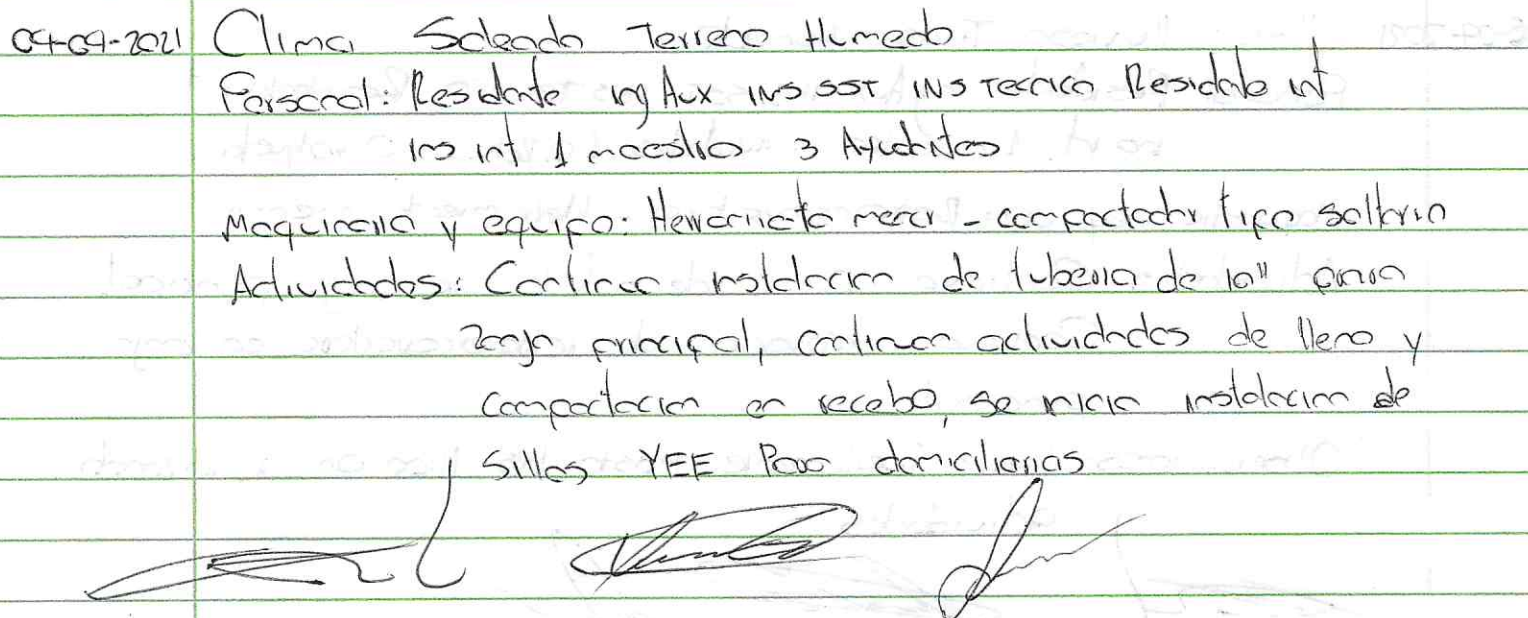 04-09-2021 Clima Soleado Terreno Humedo
Personal: Residente ing Aux INS SST INS Tecnico Residente int
ins int 1 maestro 3 Ayudantes
Maquinaria y equipo: Herramienta menor - compactador tipo saltarin
Actividades: Continua instalacion de tuberia de 10" para
zanja principal, continuan actividades de lleno y
compactacion en recebo, se inicia instalacion de
Sillas YEE Para domiciliarias